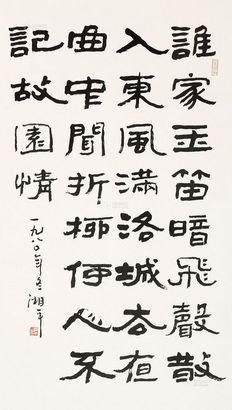 誰家玉笛暗飛聲散
入東風滿洛城夜
曲中聞折柳何人不
記故園情
一九八〇年冬湘平